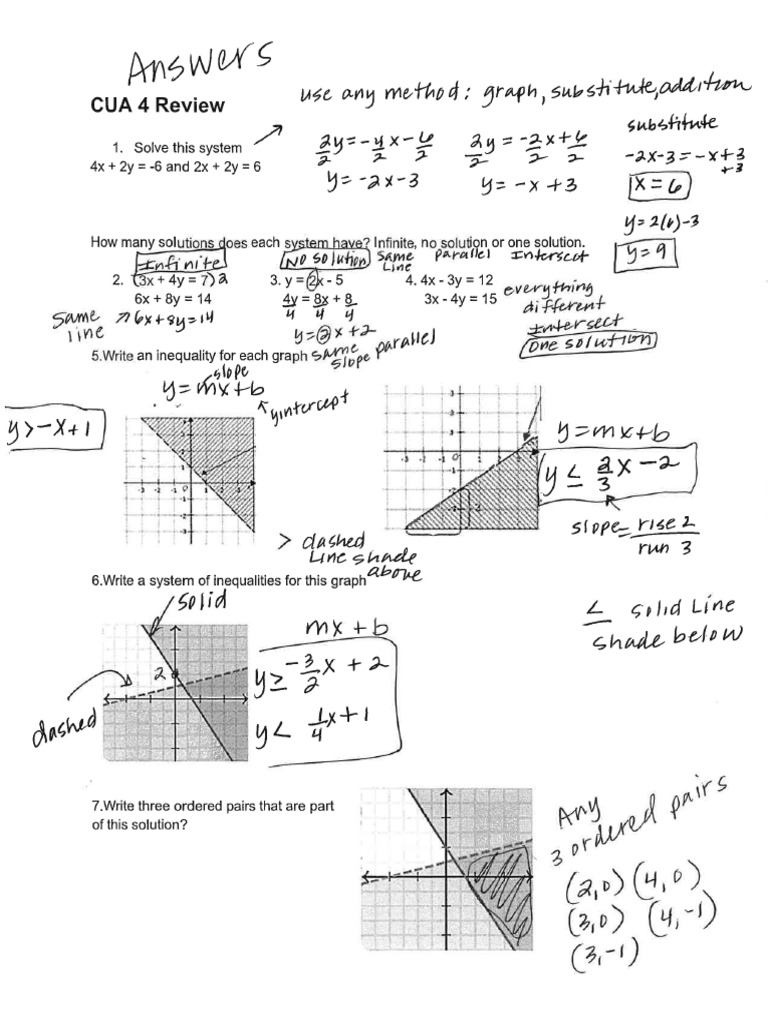 Answers
CUA 4 Review
use any method: graph, substitute, addition
1. Solve this system
4x + 2y = -6 and 2x + 2y = 6
2y = -4x - 6
2 2 2
y = -2x - 3
2y = -2x + 6
2 2 2
y = -x + 3
substitute
-2x - 3 = -x + 3
+3
x = 6
y = 2(6) - 3
y = 9
How many solutions does each system have? Infinite, no solution or one solution.
Infinite
NO SOLUTION
Same Line
parallel
Intersect
2. (3x + 4y = 7)2
6x + 8y = 14
same line ↗ 6x + 8y = 14
3. y = 2x - 5
4y = 8x + 8
4 4 4
y = 2x + 2
same slope parallel
4. 4x - 3y = 12
3x - 4y = 15
everything
different
Intersect
One solution
5.Write an inequality for each graph
slope
y = mx + b
yintercept
y > -x + 1
> dashed
Line shade
above
y = mx + b
y ≤ 2/3 x - 2
slope = rise 2
run 3
≤ solid Line
shade below
6.Write a system of inequalities for this graph
solid
2
dashed
mx + b
y ≥ -3/2 x + 2
y < 1/4 x + 1
7.Write three ordered pairs that are part
of this solution?
Any
3 ordered pairs
(2,0) (4,0)
(3,0) (4,-1)
(3,-1)